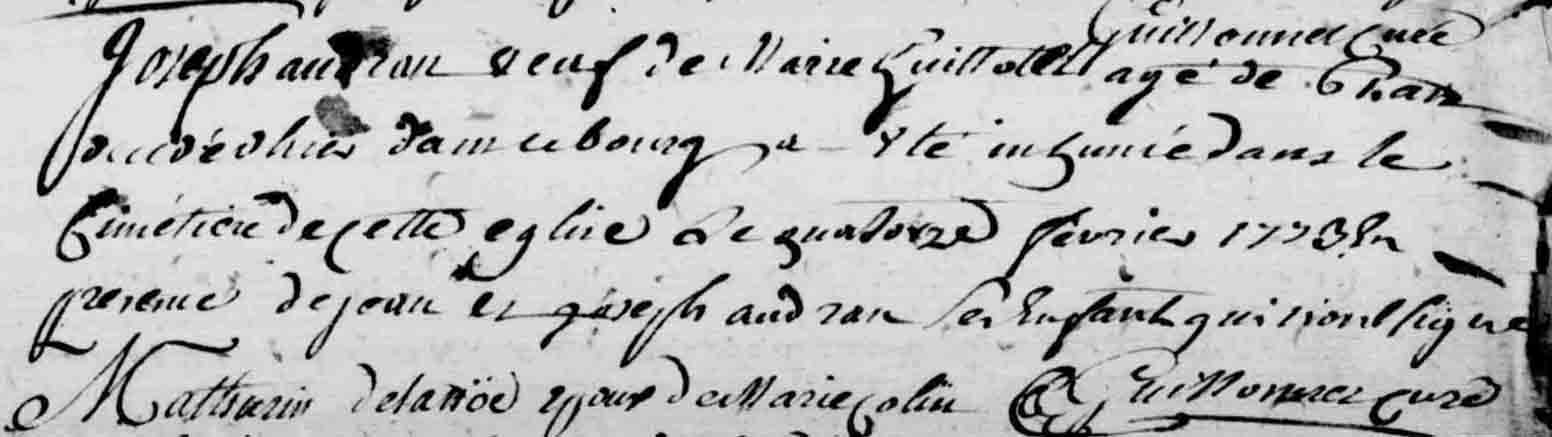 Guillonnet curé
Joseph audran veuf de Marie Guillotel agé de
décédé hier dans ce bourg a été inhumé dans le
Cimétière de cette eglise Le quatorze février 1773 En
presence de jean et joseph audran ses Enfants qui n'ont signe
Mathurin delanoë epoux de Marie colin Guillonnet curé